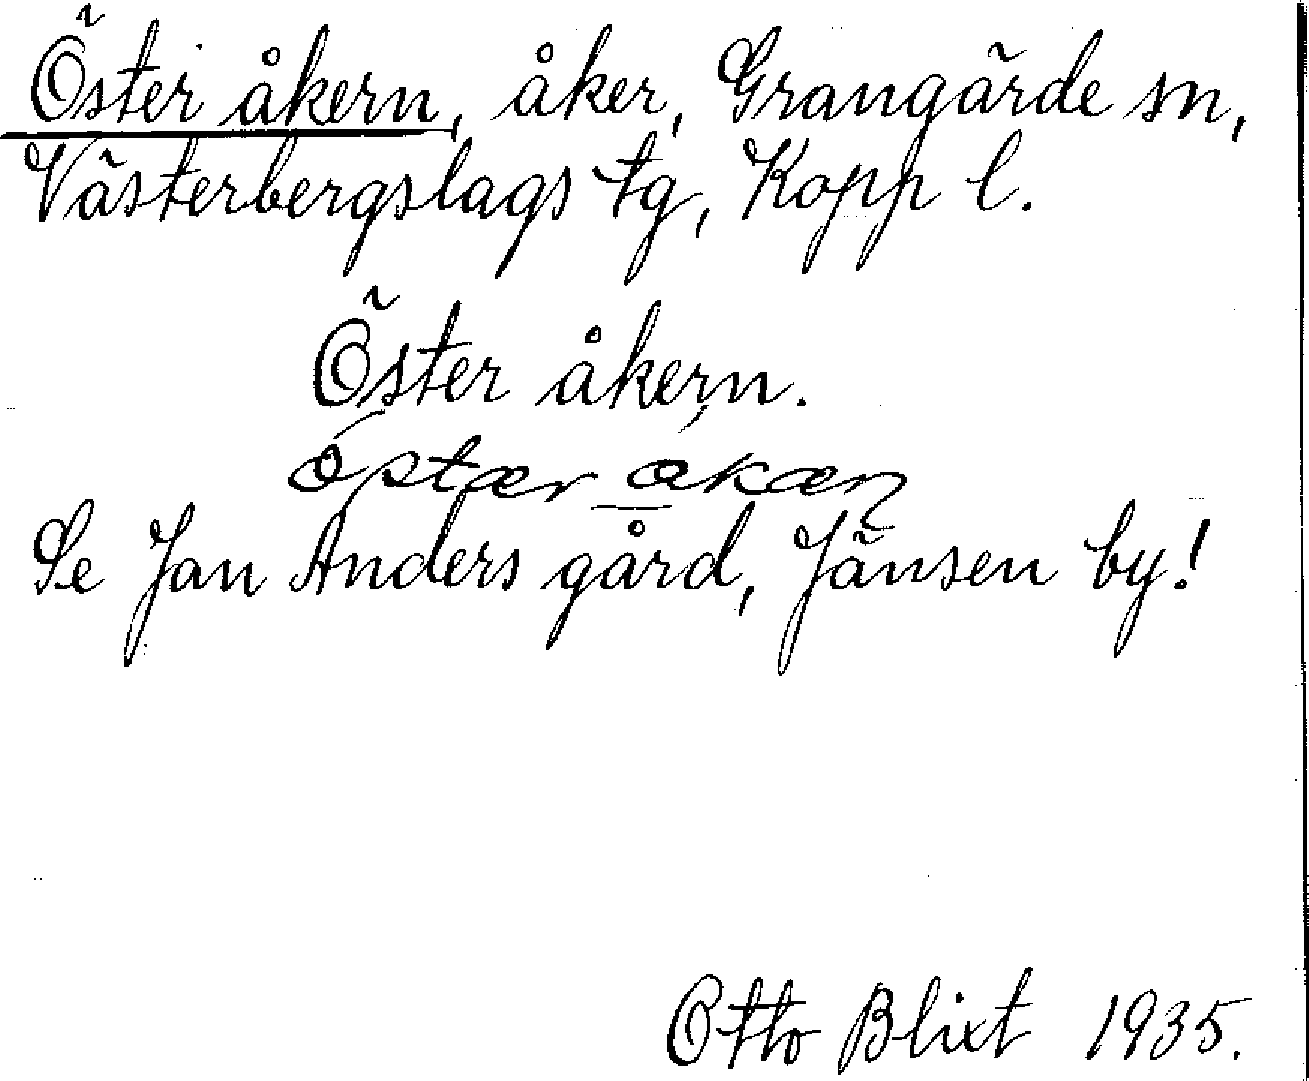 Öster åkern, åker, Grangärde sn,
Västerbergslags tg, Kopp l.
Öster åkern.
Se Jan Anders gård, Jänsen by!
Otto Blixt 1935.